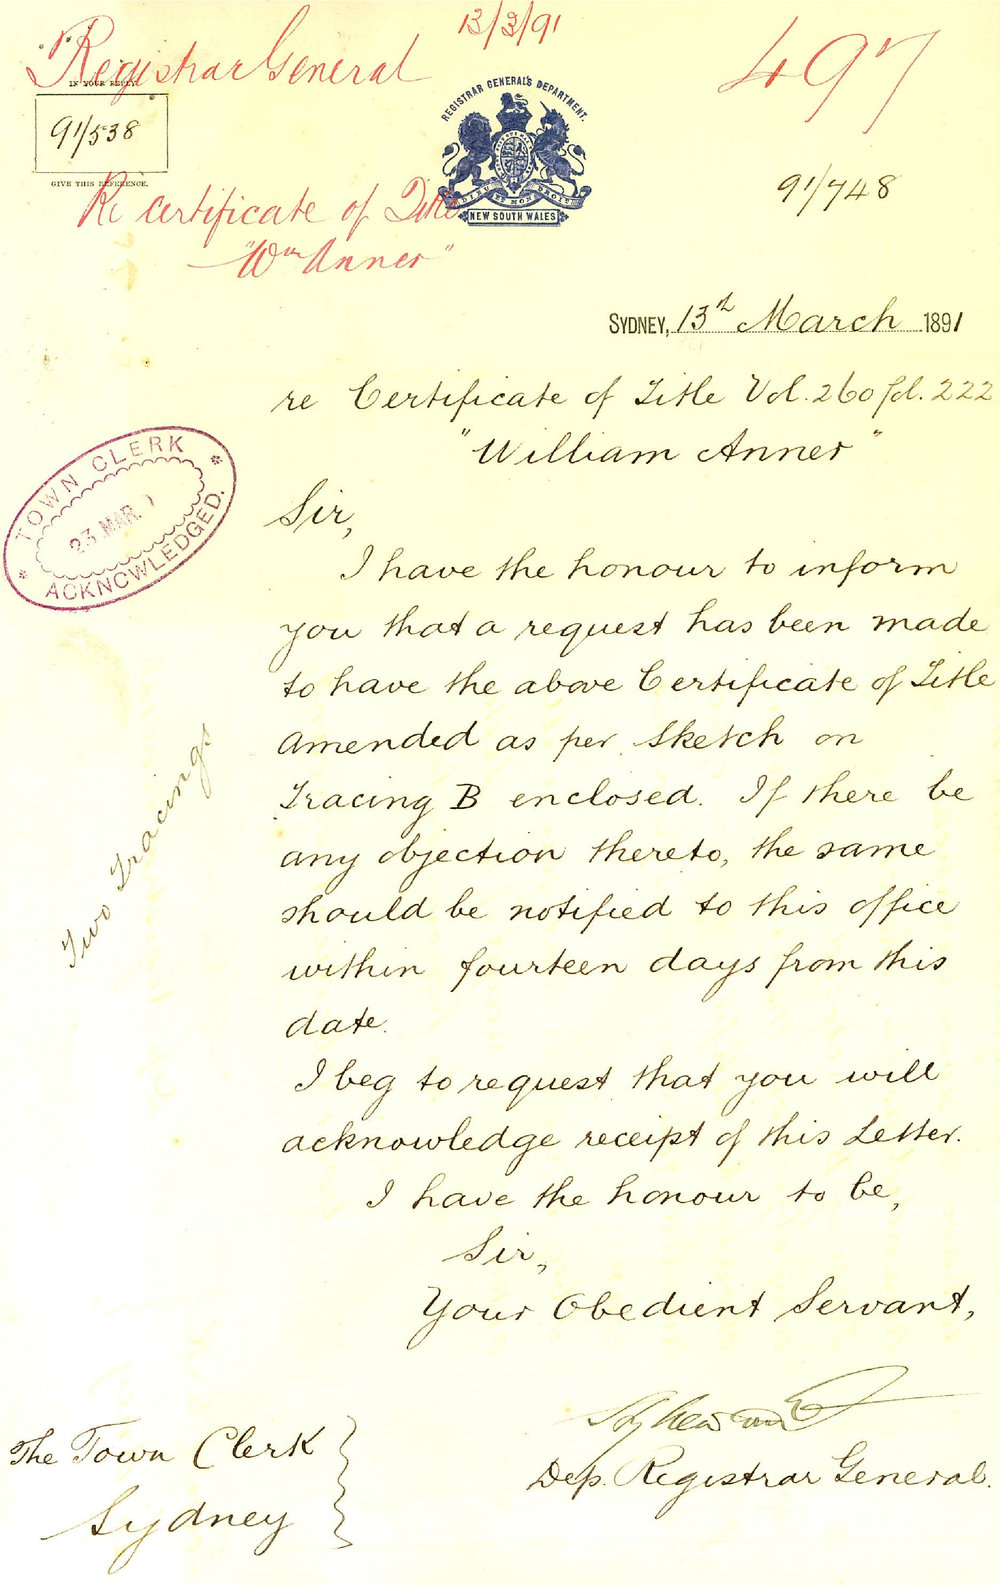 13/3/91
Registrar General
497
IN YOUR REPLY
91/538
GIVE THIS REFERENCE.
REGISTRAR GENERAL'S DEPARTMENT.
DIEU ET MON DROIT
NEW SOUTH WALES
91/748
Re Certificate of Title
"Wm Anner"
SYDNEY, 13th March 1891
re Certificate of Title Vol. 260 fol. 222
"William Anner"
TOWN CLERK
23 MAR. 
ACKNOWLEDGED.
Sir,
I have the honour to inform
you that a request has been made
to have the above Certificate of Title
Amended as per Sketch on
Tracing B enclosed. If there be
any objection thereto, the same
should be notified to this office
within fourteen days from this
date.
Two Tracings
I beg to request that you will
acknowledge receipt of this Letter.
I have the honour to be,
Sir,
Your Obedient Servant,
Dep. Registrar General.
The Town Clerk
Sydney